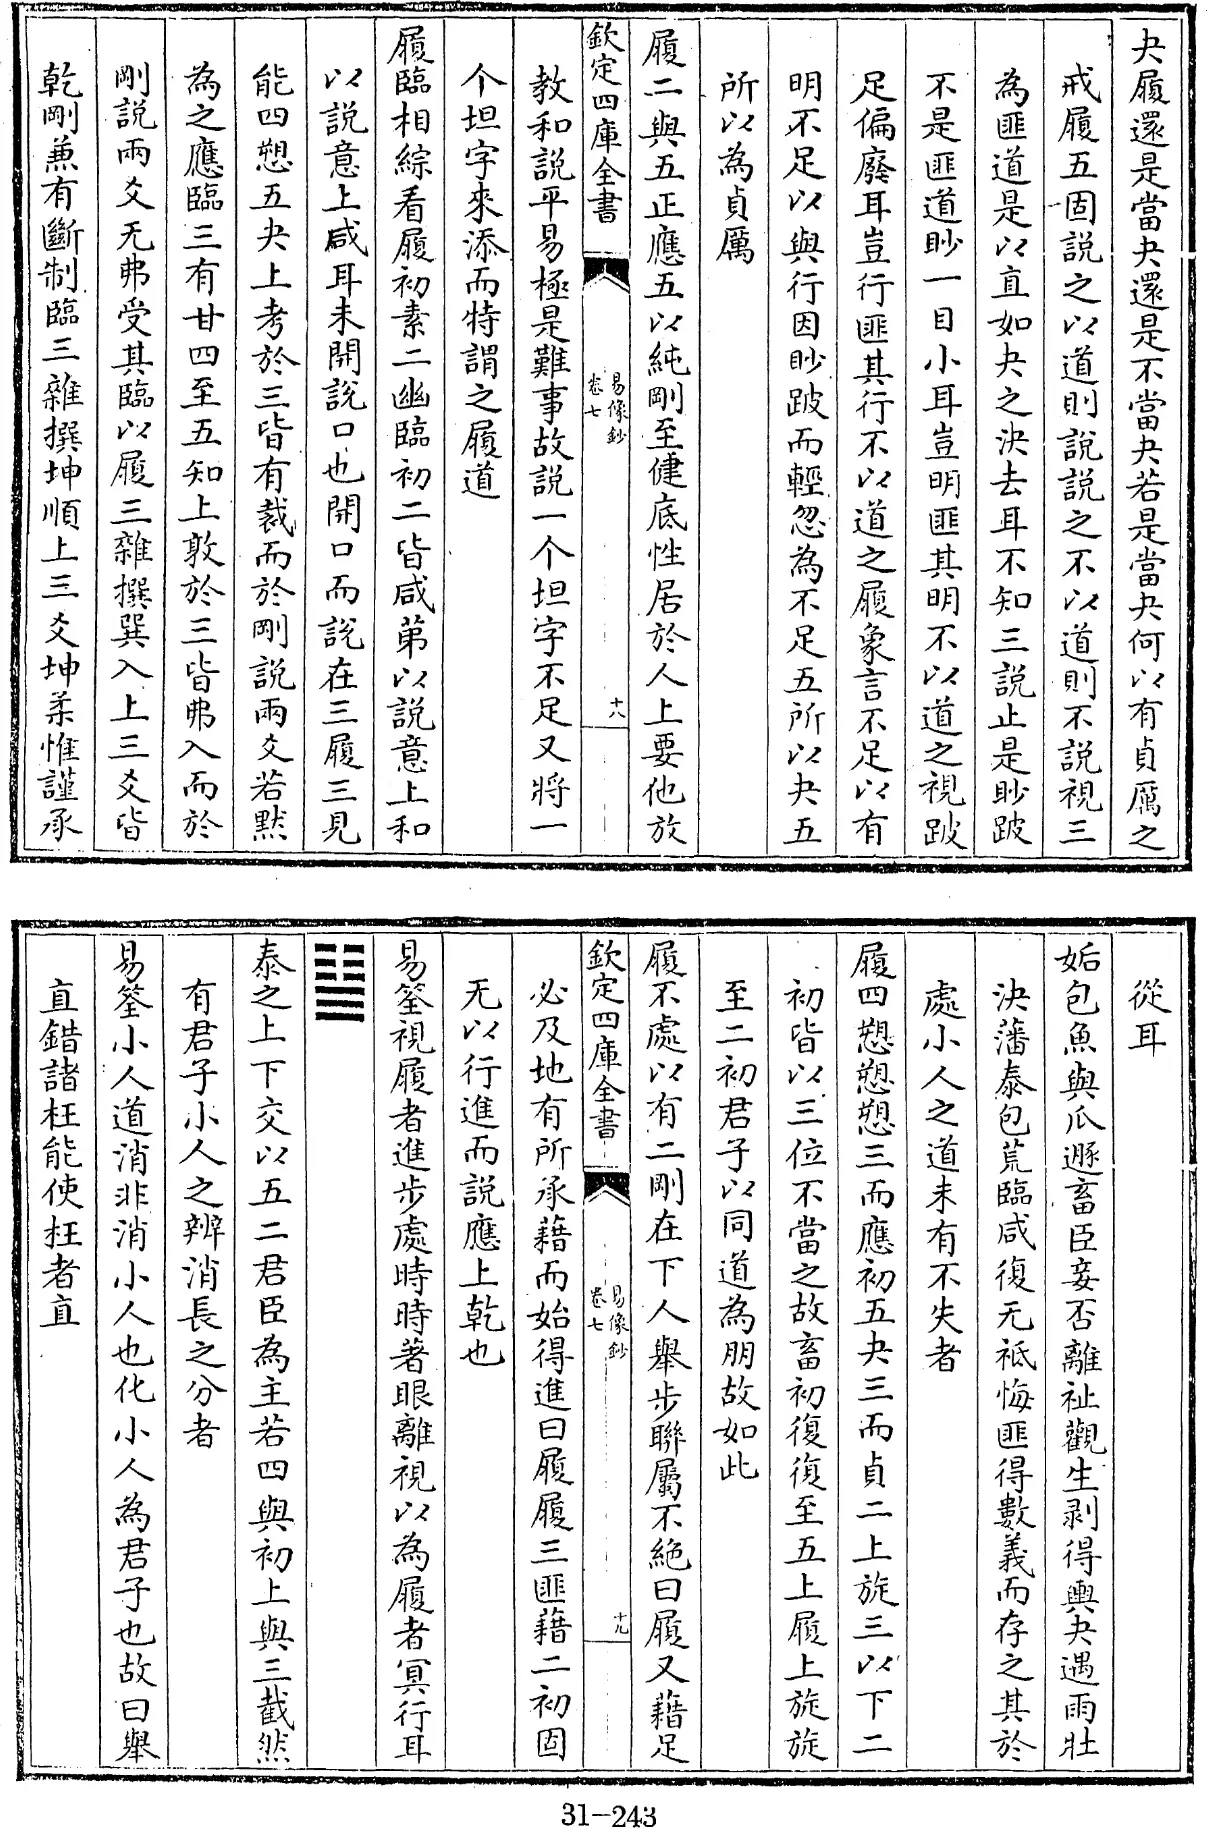 夬履還是當夬還是不當夬若是當夬何以有貞厲之
戒履五固説之以道則説説之不以道則不説視三
為匪道是以直如夬之決去耳不知三説止是眇跛
不是匪道眇一目小耳豈明匪其明不以道之視跛
足偏廢耳豈行匪其行不以道之履象言不足以有
明不足以與行因眇跛而輕忽為不足五所以夬五
所以為貞厲
履二與五正應五以純剛至健底性居於人上要他放
欽定四庫全書
易像鈔
卷七
十八
教和説平易極是難事故説一个坦字不足又將一
个坦字來添而特謂之履道
履臨相綜看履初素二幽臨初二皆咸苐以説意上和
以説意上咸耳未開説口也開口而説在三履三見
能四愬五夬上考於三皆有裁而於剛説兩爻若默
為之應臨三有甘四至五知上敦於三皆弗入而於
剛説兩爻无弗受其臨以履三雜撰巽入上三爻皆
乾剛兼有斷制臨三雜撰坤順上三爻坤柔惟謹承
從耳
姤包魚與瓜遯畜臣妾否離祉觀生剥得輿夬遇雨壯
決藩泰包荒臨咸復无祗悔匪得數義而存之其於
處小人之道未有不失者
履四愬愬愬三而應初五夬三而貞二上旋三以下二
初皆以三位不當之故畜初復復至五上履上旋旋
至二初君子以同道為朋故如此
履不處以有二剛在下人舉步聯屬不絶曰履又藉足
欽定四庫全書
易像鈔
卷七
十九
必及地有所承藉而始得進曰履履三匪藉二初固
无以行進而説應上乾也
易筌視履者進步處時時著眼離視以為履者冥行耳
䷊
泰之上下交以五二君臣為主若四與初上與三截然
有君子小人之辨消長之分者
易筌小人道消非消小人也化小人為君子也故曰舉
直錯諸枉能使枉者直
31-243